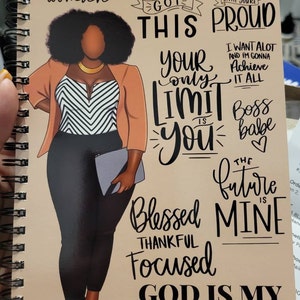 GOT
THIS
PROUD
I WANT ALOT
AND I'M GONNA
Achieve
IT ALL
YOUR
only
LIMIT
IS
YOU
Boss
babe
THE
future
IS
MINE
Blessed
THANKFUL
Focused
GOD IS MY